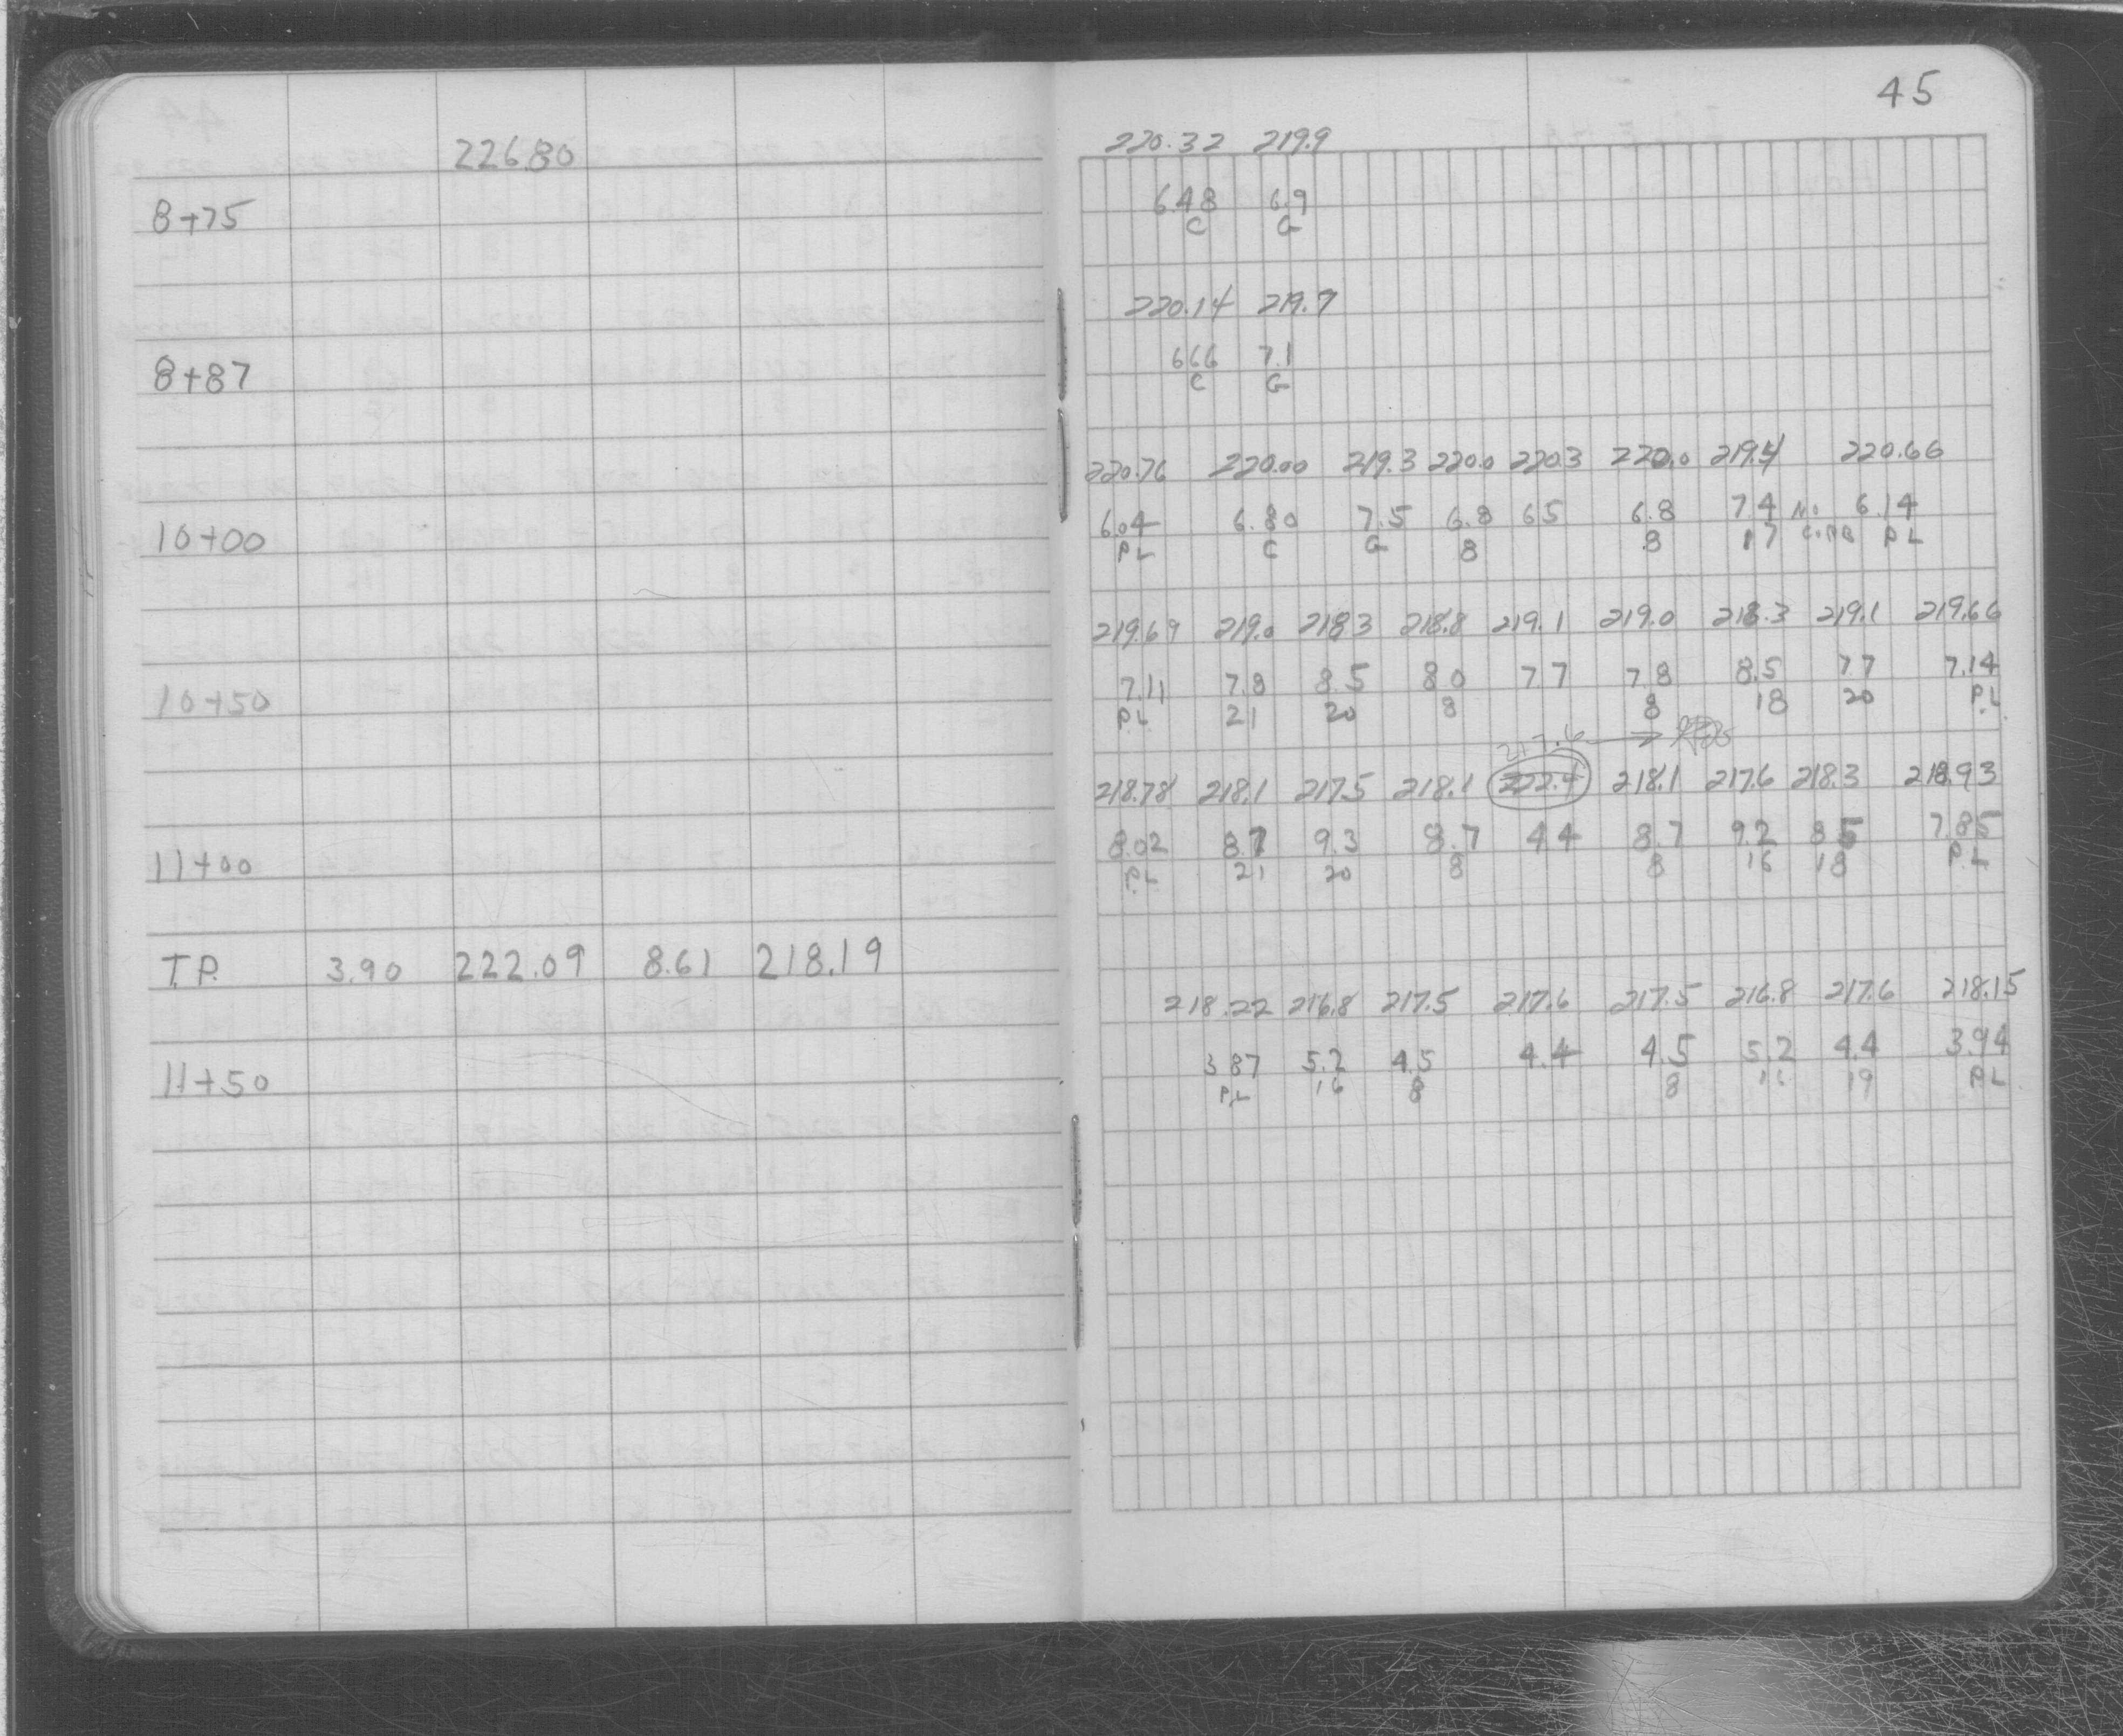 45
226.80
220.32 219.9
8+75 6.48 6.9
C G
220.14 219.7
8+87 6.66 7.1
C G
220.76 220.00 219.3 220.0 220.3 220.0 219.4 220.66
10+00 6.04 6.80 7.5 6.8 6.5 6.8 7.4 No 6.14
P.L C G 8 8 17 CURB P.L
219.69 219.0 218.3 218.8 219.1 219.0 218.3 219.1 219.66
10+50 7.11 7.8 8.5 8.0 7.7 7.8 8.5 7.7 7.14
P.L 21 20 8 8 18 20 P.L
217.6
218.78 218.1 217.5 218.1 222.4 218.1 217.6 218.3 218.93
11+00 8.02 8.7 9.3 8.7 4.4 8.7 9.2 8.5 7.85
P.L 21 20 8 8 16 18 P.L
T.P. 3.90 222.09 8.61 218.19
218.22 216.8 217.5 217.6 217.5 216.8 217.6 218.15
11+50 3.87 5.2 4.5 4.4 4.5 5.2 4.4 3.94
P.L 16 8 8 16 19 P.L